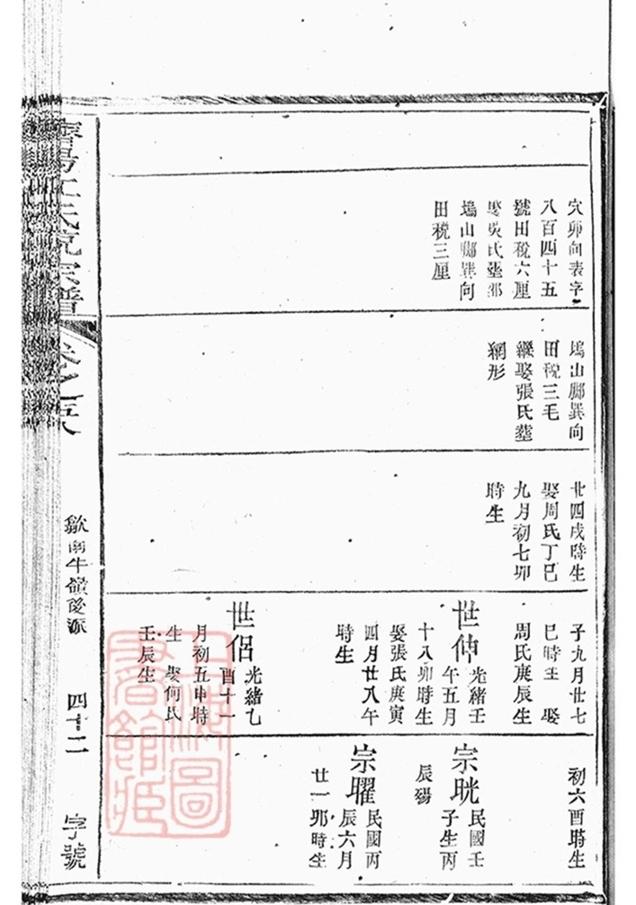 穴卯向表字
八百四十五
號田稅六厘
娶吳氏塟邵
塢山腳巽向
田稅三厘
塢山腳巽向
田稅三毛
繼娶張氏塟
網形
廿四戌時生
娶周氏丁巳
九月初七卯
時生
子九月廿七
巳時生 娶
周氏庚辰生
世仲 光緒壬
午五月
十八卯時生
娶張氏庚寅
四月廿八午
時生
世侶 光緒乙
酉十一
月初五申時
生 娶何氏
壬辰生
初六酉時生
宗晄 民國壬
子生丙
辰殤
宗曜 民國丙
辰六月
廿一卯時生
濟陽江氏統宗譜
卷之五
歙南牛嶺後派
四十二
字號
上海圖
書館藏